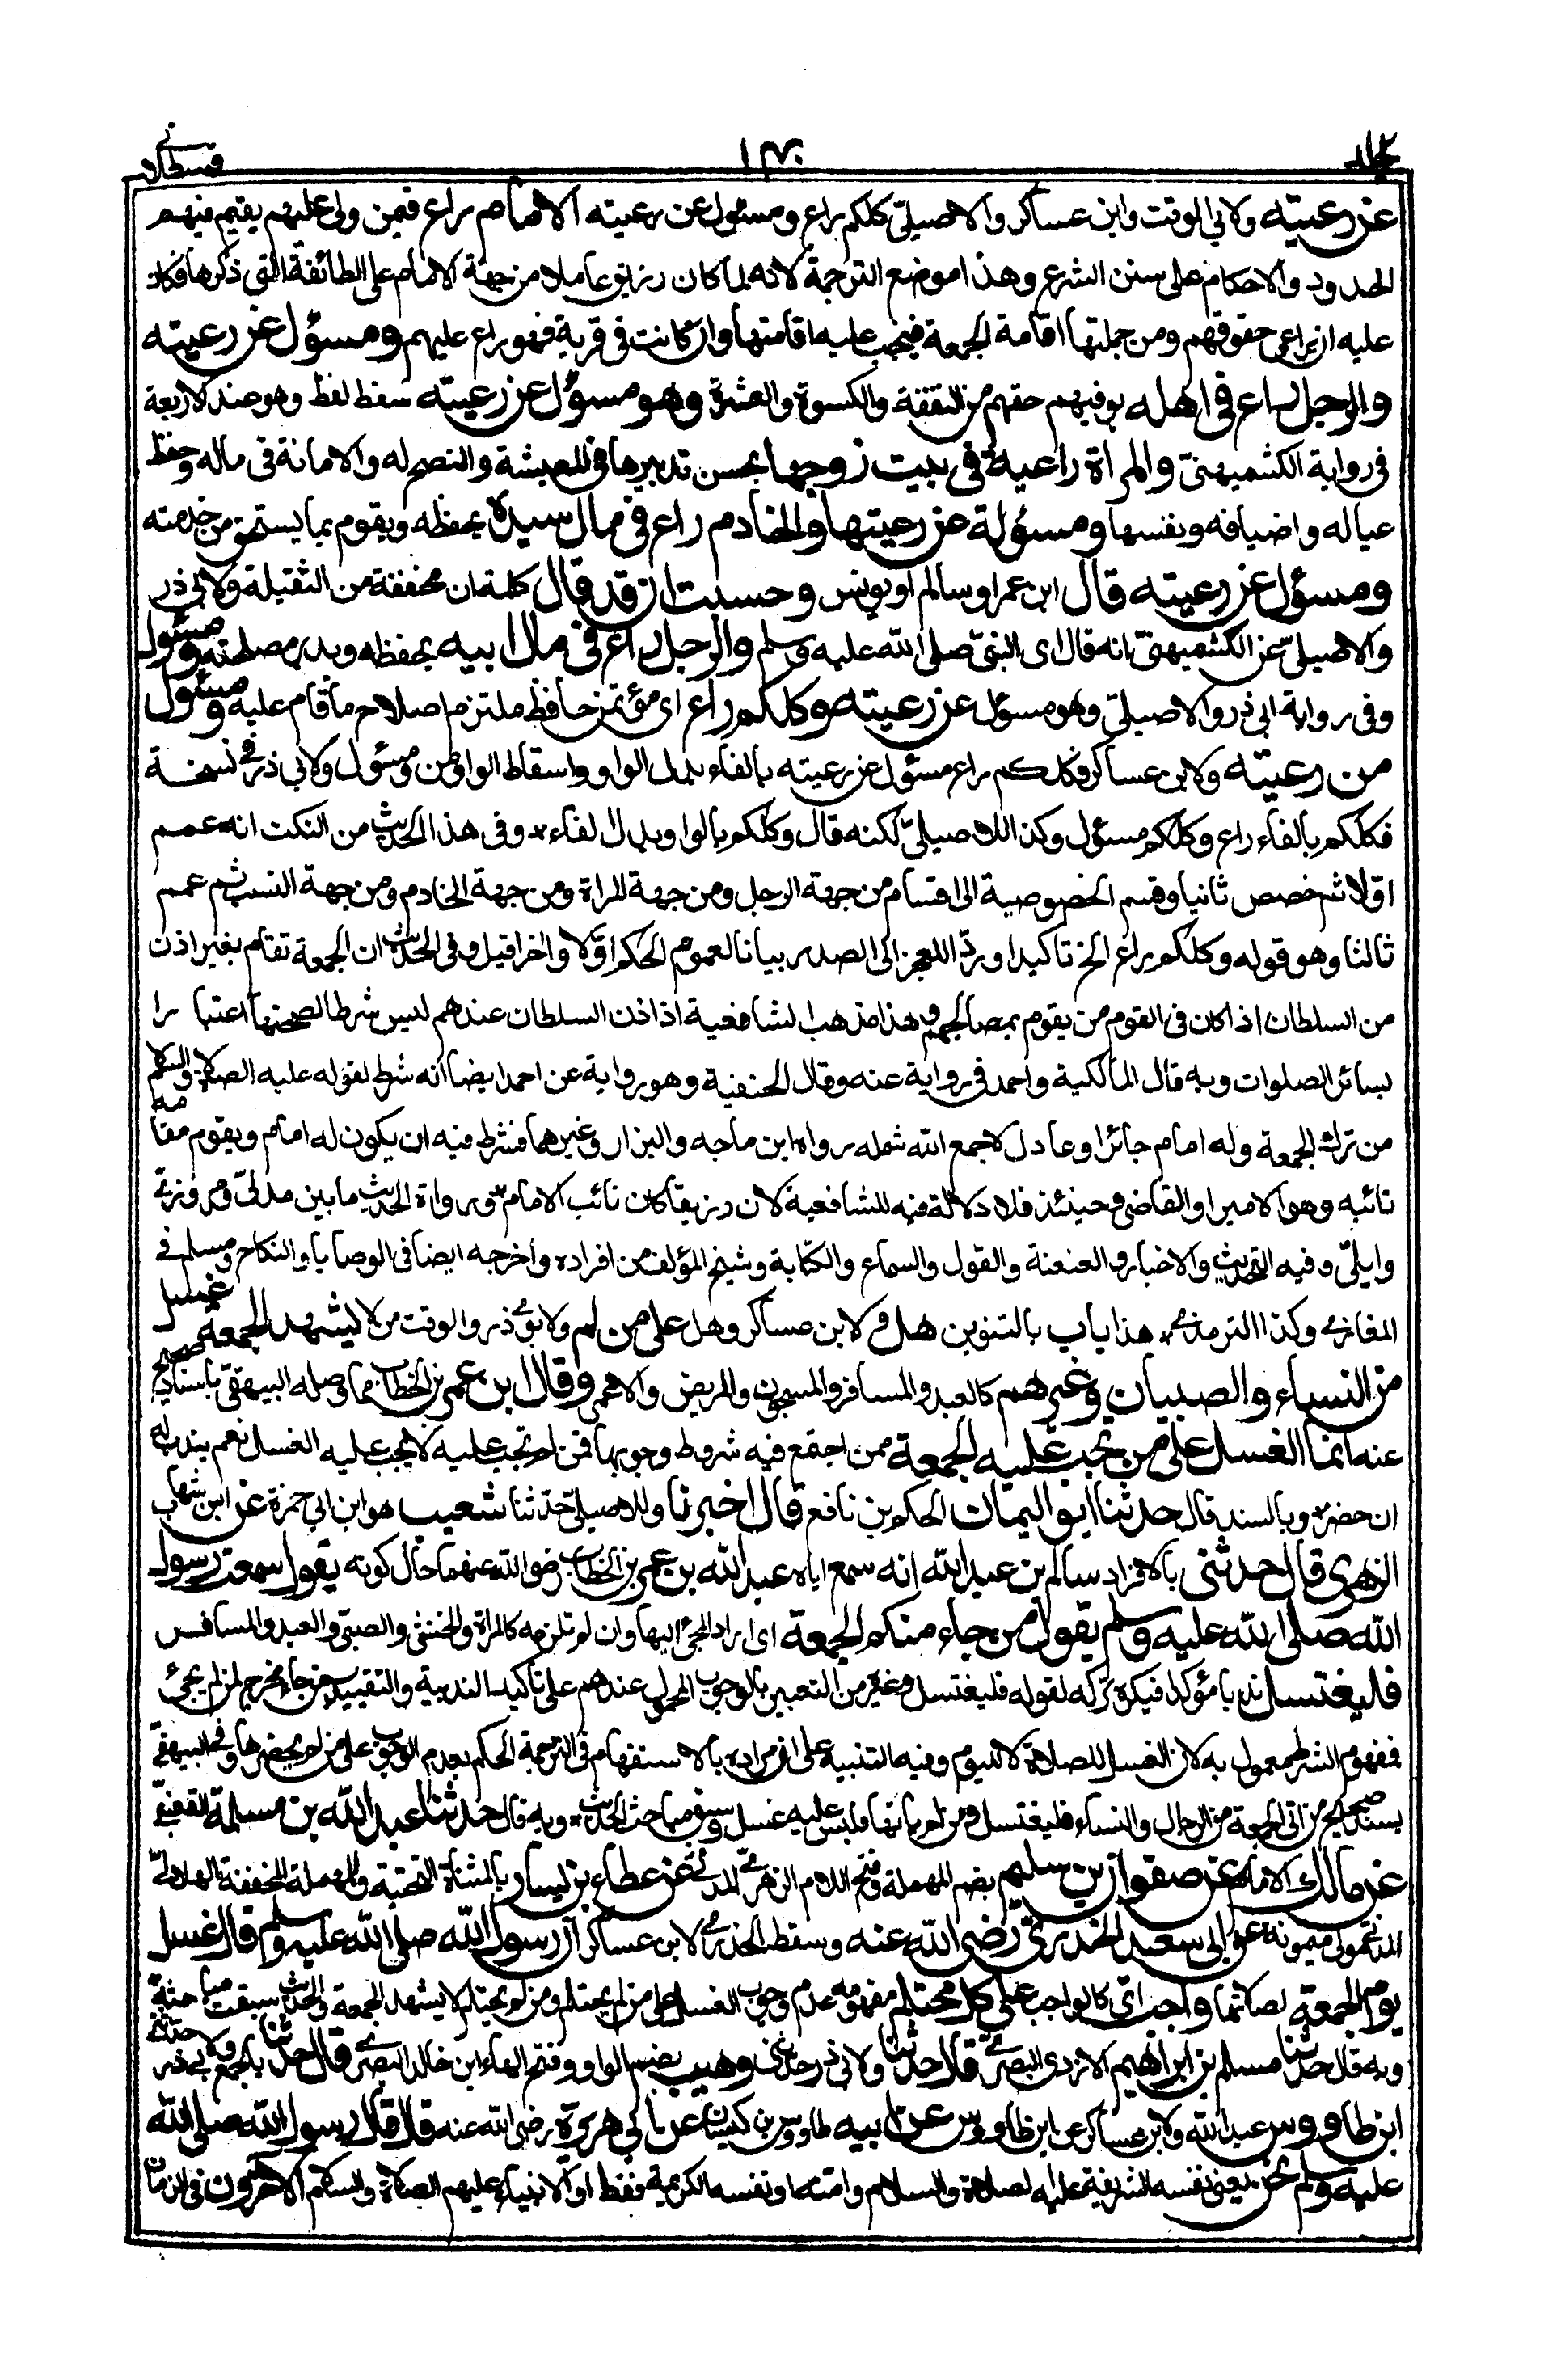 جلد ٢
١٣٠
قسطلانے
عن رعيته ولابي الوقت وابن عساكر والاصيلىّ كلكم راع ومسئول عن رعيته الامام راع فيمن ولى عليهم يقيم فيهم
الحدود والاحكام على سنن الشرع وهذا موضع الترجمة لانه لما كان رزيق عاملا من جهة الامام على الطائفة التى ذكرها فكان
عليه ان يراعى حقوقهم ومن جملتها اقامة الجمعة فيجب عليه اقامتها وان كانت فى قرية فهو راع عليهم ومسؤل عن رعيته
والرجل راع فى اهله يوفيهم حقهم من النفقة والكسوة والعشرة وهو مسؤل عن رعيته سقط لفظ وهو عند الاربعة
فى رواية الكشميهنىّ والمراة راعية فى بيت زوجها بحسن تدبيرها فى المعيشة والنصح له والامانة فى ماله وحفظ
عياله واضيافه ونفسها ومسؤلة عن رعيتها والخادم راع فى مال سيده يحفظه ويقوم بما يستحق من خدمته
ومسؤل عن رعيته قال ابن عمر او سالم او يونس وحسبت ان قد قال كلمة ان مخففة من الثقيلة ولابي ذر
والاصيلىّ عن الكشميهنىّ انه قال اى النبىّ صلى الله عليه وسلم والرجل راع فى مال ابيه يحفظه ويدبر مصلحته ومسئول
وفى رواية ابي ذر والاصيلىّ وهو مسؤل عن رعيته وكلكم راع اى مؤتمن حافظ ملتزم اصلاح ما قام عليه ومسئول
من رعيته ولابن عساكر فكلكم راع مسئول عن رعيته بالفاء بدل الواو واسقاط الواو من ومسئول ولابي ذر فے نسخة
فكلكم بالفاء راع وكلكم مسؤل وكذا للاصيلىّ لكنه قال وكلكم بالواو بدل الفاء وفى هذا الحديث من النكت انه عمم
اوّلا ثم خصص ثانيا وقسم الخصوصية الى اقسام من جهة الرجل ومن جهة المراة ومن جهة الخادم ومن جهة النسب ثم عمم
ثالثا وهو قوله وكلكم راع الخ تاكيدا وردّا للعجز الى الصدر بيانا لعموم الحكم اوّلا واخرا قيل وفى الحديث ان الجمعة تقام بغير اذن
من السلطان اذا كان فى القوم من يقوم بمصالحهم وهذا مذهب الشافعية اذ اذن السلطان عندهم ليس شرطا لصحتها اعتبارا
بسائر الصلوات وبه قال المالكية واحمد فى رواية عنه وقال الحنفية وهو رواية عن احمد ايضا انه شرط لقوله عليه الصلاة والسلام
من ترك الجمعة وله امام جائر او عادل لا جمع الله شمله رواه ابن ماجه والبزار وغيرهما فشرط فيه ان يكون له امام ويقوم مقامه
نائبه وهو الامير او القاضى وحينئذ فلا دلالة فيه للشافعية لان رزيقا كان نائب الامام ورواة الحديث ما بين مدنىّ ومروزىّ
وايلىّ وفيه التحديث والاخبار والعنعنة والقول والسماع والكتابة وشيخ المؤلف من افراده واخرجه ايضا فى الوصايا والنكاح ومسلم فے
المغازے وكذا الترمذے هذا باب بالتنوين هل ولابن عساكر وهل على من لم ولابوى ذر والوقت من لا يشهد الجمعة غسل
من النساء والصبيان وغيرهم كالعبد والمسافر والمسجون والمريض والاعمى وقال ابن عمر بن الخطاب مما وصله البيهقىّ باسناد صحيح
عنه انما الغسل على من يجب عليه الجمعة ممن اجتمع فيه شروط وجوبها فمن لم تجب عليه لا يجب عليه الغسل نعم يندب له
ان حضر وبالسند قال حدثنا ابو اليمان الحكم بن نافع قال اخبرنا وللاصيلىّ حدّثنا شعيب هو ابن ابي حمزة عن ابن شهاب
الزهرى قال حدثنى بالافراد سالم بن عبد الله انه سمع اباه عبد الله بن عمر بن الخطاب رضى الله عنهما حال كونه يقول سمعت رسول
الله صلى الله عليه وسلم يقول من جاء منكم الجمعة اى اراد المجئ اليها وان لم تلزمه كالمراة والخنثى والصبىّ والعبد والمسافر
فليغتسل ندبا مؤكدا فيكره تركه لقوله فليغتسل وغيره من التعبير بالوجوب المحمول عندهم على تاكيد الندبية والتقييد بمن جاء مخرج لمن لم يجئ
فمفهوم الشرط معمول به لان الغسل للصلاة لا لليوم وفيه التنبيه على ان مراده بالاستفهام فى الترجمة الحكم بعدم الوجوب على من لم يحضرها وفى البيهقے
بسند صحيح من اتى الجمعة من الرجال والنساء فليغتسل ومن لم ياتها فليس عليه غسل وسبق مباحث الحديث وبه قال حدثنا عبد الله بن مسلمة القعنبىّ
عن مالك الامام عن صفوان بن سليم بضم المهملة وفتح اللام الزهرے المدنے عن عطاء بن يسار بالمثناة التحتية والمهملة المخففة الهلالىّ
المدنى مولى ميمونة عن ابى سعيد الخدرىّ رضى الله عنه وسقط الخدرى لابن عساكر ان رسول الله صلى الله عليه وسلم قال غسل
يوم الجمعة لصلاتها واجب اى كالواجب على كل محتلم مفهومه عدم وجوب الغسل على من لم يحتلم ومن لم يحتلم لا يشهد الجمعة والحديث سبقت مباحثه
وبه قال حدثنا مسلم بن ابراهيم الازدى البصرىّ قال حدثنا ولابي ذر حدثنى وهيب بضم الواو وفتح الهاء ابن خالد البصرے قال حدثنا بالجمع ولابي ذر حدثنى
ابن طاووس عبد الله ولابن عساكر عن ابن طاووس عن ابيه طاووس بن كيسان عن ابي هريرة رضى الله عنه قال قال رسول الله صلى الله
عليه وسلم نحن يعنى نفسه الشريفة عليه الصلاة والسلام وامته او نفسه الكريمة فقط او الانبياء عليهم الصلاة والسلام الاخرون فى الزمان